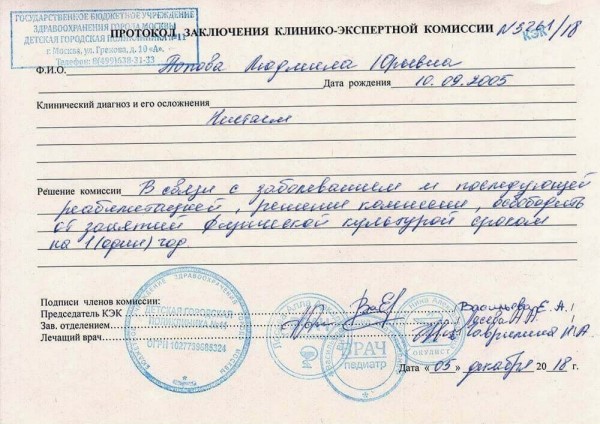 ГОСУДАРСТВЕННОЕ БЮДЖЕТНОЕ УЧРЕЖДЕНИЕ
ЗДРАВООХРАНЕНИЯ ГОРОДА МОСКВЫ
ДЕТСКАЯ ГОРОДСКАЯ
г. Москва, ул. Грекова, д. 10 «А».
Телефон: 8(499)638-31-23
ПРОТОКОЛ ЗАКЛЮЧЕНИЯ КЛИНИКО-ЭКСПЕРТНОЙ КОМИССИИ N3261/18
КЭК
Ф.И.О. Попова Людмила Юрьевна
Дата рождения 10.09.2005
Клинический диагноз и его осложнения
Нистагм
Решение комиссии В связи с заболеванием и последующей
реабилитацией, решение комиссии, освободить
от занятий физической культурой сроком
на 1(один) год
Подписи членов комиссии:
Председатель КЭК Васильева Е.А.
Зав. отделением
Лечащий врач Гаврилина М.А.
ДЕТСКАЯ ГОРОДСКАЯ
ОГРН
ВРАЧ
педиатр
окулист
Дата «05» декабря 2018 г.